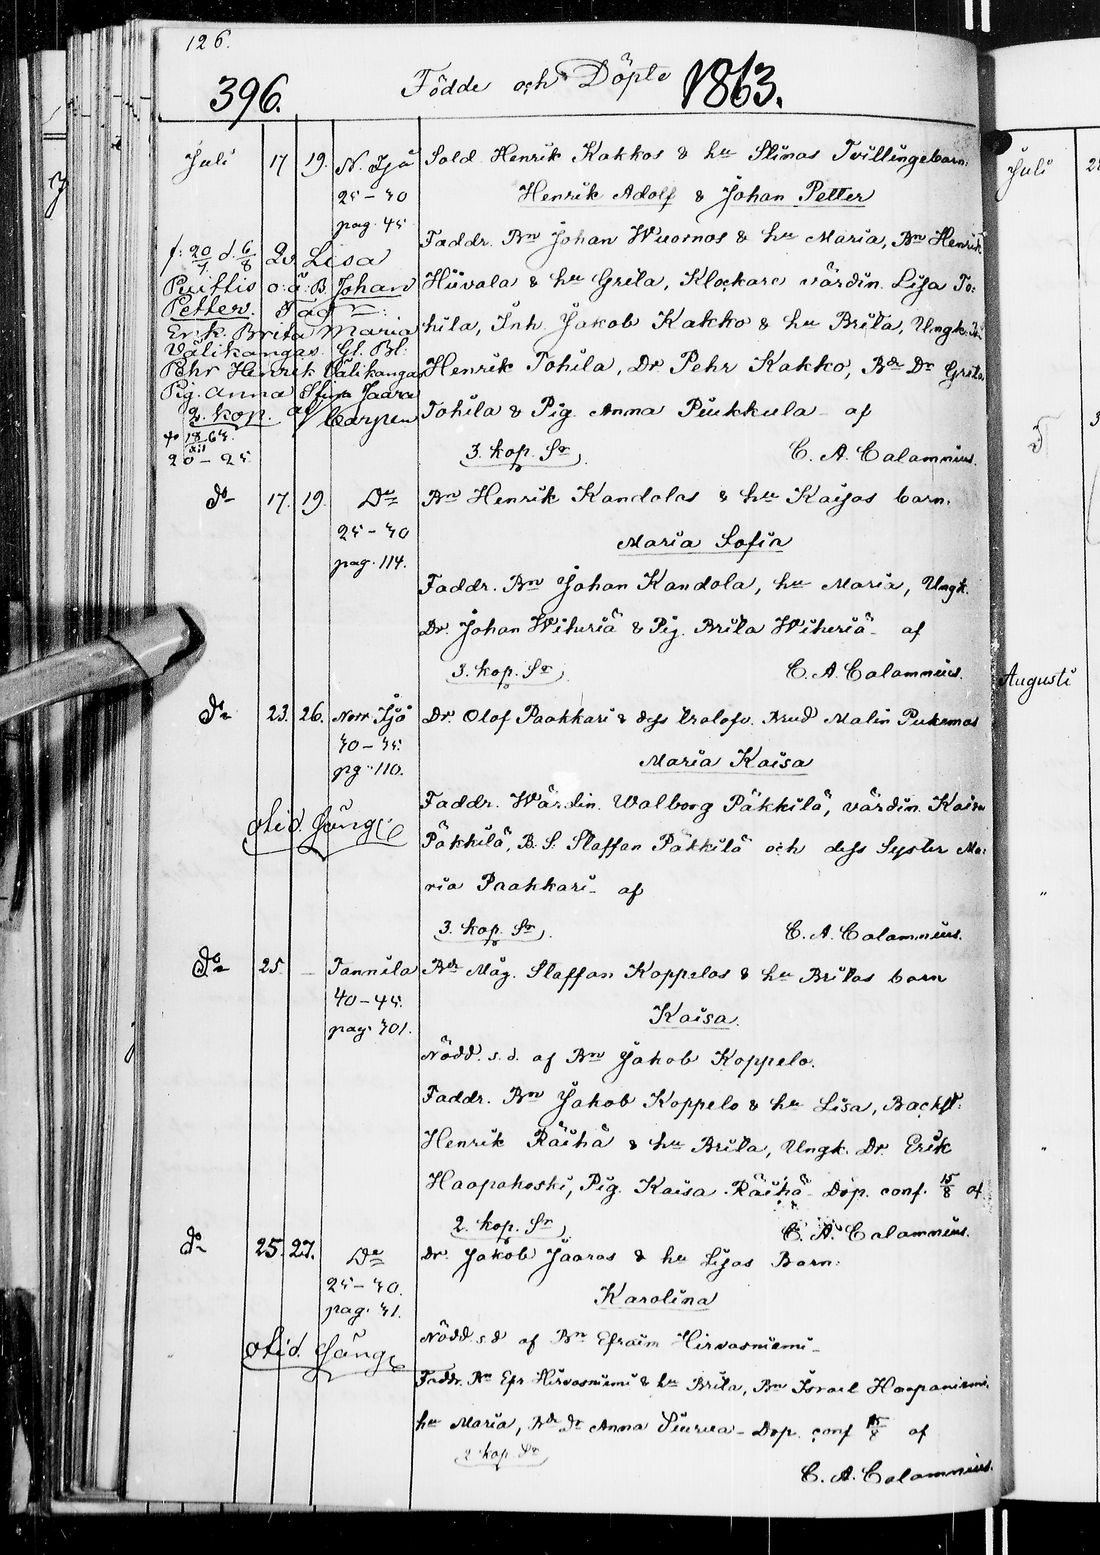 126.
396. Födde och Döpte 1863.
Juli 17 19. N. Ijå Sold. Henrik Kakkos & hu Stinas Tvillingebarn:
25–30 Henrik Adolf & Johan Petter
pag. 45
Faddr. Bn Johan Wuornos & hu Maria, Bn Henrik
Hiivala & hu Greta, Klockare värdin. Lisa To:
hila, Inh. Jakob Kakko & hu Brita, Ungk.
Henrik Tohila, Dr Pehr Kakko, Bdr Dr Greta
Tohila & Pig. Anna Piukkula af
3. kop. Sr C. A. Calamnius.
f. 20/7 d. 6/8 Lisa
o. ä. B Johan
Petter. Fad
Erik Brita Maria
Välikangas Gl. Bl:
Pehr Henrik Välikangas
Pig. Anna Stina Jaara
2. kop. af Carpen
20–25
Do 17. 19. Do Bn Henrik Kandolas & hu Kaisas barn.
25–30 Maria Sofia
pag. 114.
Faddr. Bn Johan Kandola, hu Maria, Ungk.
Dr. Johan Wiheriä & Pig. Brita Wiheriä af
3. kop. Sr C. A. Calamnius.
Do 23. 26. Norr Ijå Dr. Olof Paakkari & dess trolofv. Brud Malin Pukemas
30–35. Maria Kaisa
pg. 110.
Faddr. Wärdin. Walborg Päkkilä, värdin. Kaisa
Päkkilä, B. S. Staffan Päkkilä och dess Syster Ma:
ria Paakkari af
3. kop. Sr C. A. Calamnius.
Do 25. – Tannila Bdr Måg. Staffan Koppelos & hu Britas barn
40–45. Kaisa.
pag. 301.
Nödd. s. d. af Bn Jakob Koppelo.
Faddr. Bn Jakob Koppelo & hu Lisa, Backst.
Henrik Räihä & hu Brita, Ungk. Dr. Erik
Haapakoski, Pig. Kaisa Räihä Dop. conf. 15/8 af
2. kop. Sr C. A. Calamnius.
Do 25. 27. Do Dr. Jakob Jaaras & hu Lisas Barn:
25–30. Karolina
pag. 31.
Nödd. s d af Bn Efraim Hirvasniemi
Faddr. Bn Efr Hirvasniemi & hu Brita, Bn Israel Haapaniemi,
hu Maria, Bdr Dr Anna Siurua Dop. conf 15/8 af
2 kop. Sr
C. A. Calamnius.
Juli
Augusti